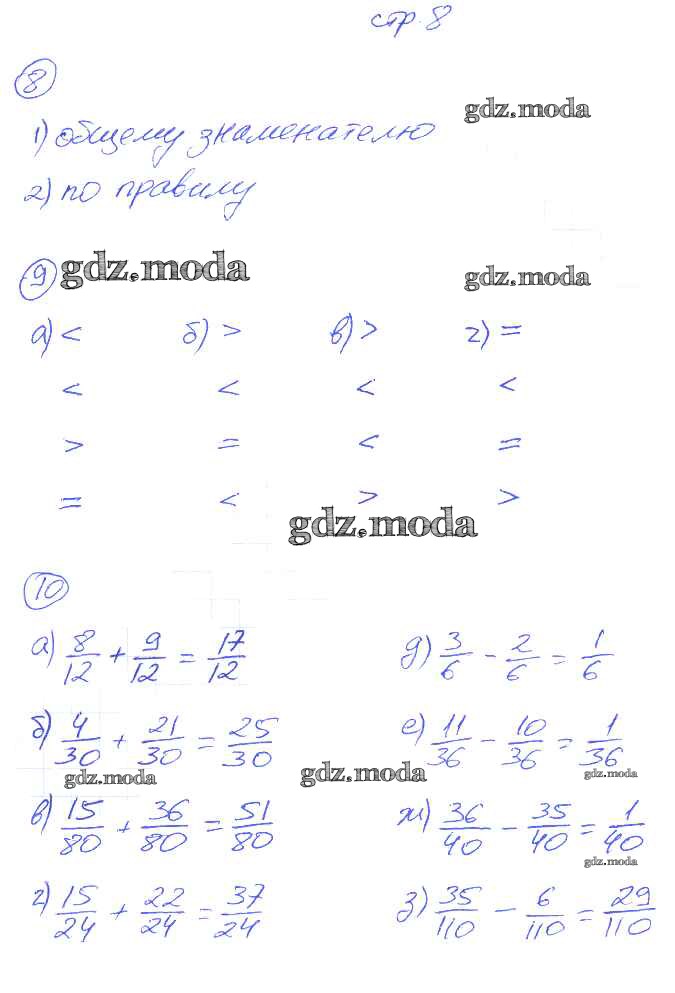 стр. 8
8
gdz.moda
1) общему знаменателю
2) по правилу
9 gdz.moda gdz.moda
а) < б) > в) > г) =
< < < <
> = < =
= < > >
gdz.moda
10
а) 8/12 + 9/12 = 17/12 д) 3/6 - 2/6 = 1/6
б) 4/30 + 21/30 = 25/30 е) 11/36 - 10/36 = 1/36
gdz.moda gdz.moda gdz.moda
в) 15/80 + 36/80 = 51/80 ж) 36/40 - 35/40 = 1/40
gdz.moda
г) 15/24 + 22/24 = 37/24 з) 35/110 - 6/110 = 29/110